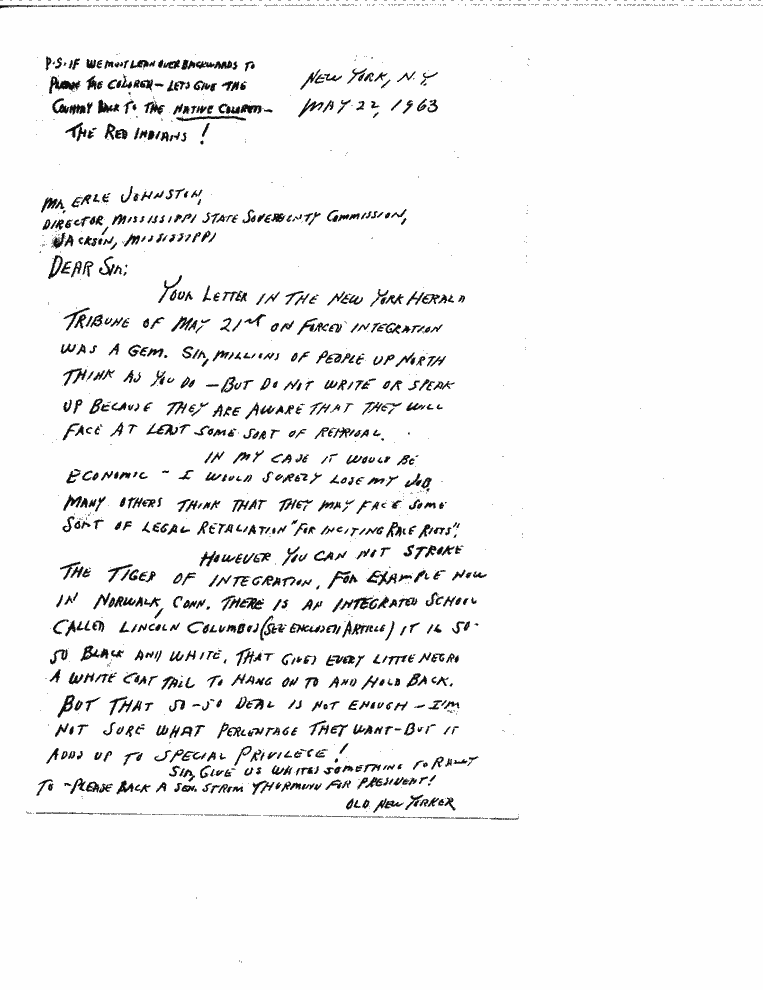 P.S. IF WE MUST LEAN OVER BACKWARDS TO
PLEASE THE COLORED - LETS GIVE THE
COUNTRY BACK TO THE NATIVE COLORED -
THE RED INDIANS!
NEW YORK, N.Y.
MAY 22, 1963
MR. ERLE JOHNSTON,
DIRECTOR, MISSISSIPPI STATE SOVEREIGNTY COMMISSION,
JACKSON, MISSISSIPPI
DEAR SIR:
YOUR LETTER IN THE NEW YORK HERALD
TRIBUNE OF MAY 21ST ON FORCED INTEGRATION
WAS A GEM. SIR, MILLIONS OF PEOPLE UP NORTH
THINK AS YOU DO - BUT DO NOT WRITE OR SPEAK
UP BECAUSE THEY ARE AWARE THAT THEY WILL
FACE AT LEAST SOME SORT OF REPRISAL.
IN MY CASE IT WOULD BE
ECONOMIC - I WOULD SURELY LOSE MY JOB.
MANY OTHERS THINK THAT THEY MAY FACE SOME
SORT OF LEGAL RETALIATION "FOR INCITING RACE RIOTS".
HOWEVER YOU CAN NOT STROKE
THE TIGER OF INTEGRATION. FOR EXAMPLE NOW
IN NORWALK, CONN. THERE IS AN INTEGRATED SCHOOL
CALLED LINCOLN COLUMBUS (SEE ENCLOSED ARTICLE) IT IS 50-
50 BLACK AND WHITE, THAT GIVES EVERY LITTLE NEGRO
A WHITE COAT TAIL TO HANG ON TO AND HOLD BACK.
BUT THAT 50-50 DEAL IS NOT ENOUGH - I'M
NOT SURE WHAT PERCENTAGE THEY WANT - BUT IT
ADDS UP TO SPECIAL PRIVILEGE!
SIR, GIVE US WHITES SOMETHING TO RALLY
TO - PLEASE BACK A SEN. STROM THURMOND FOR PRESIDENT!
OLD NEW YORKER